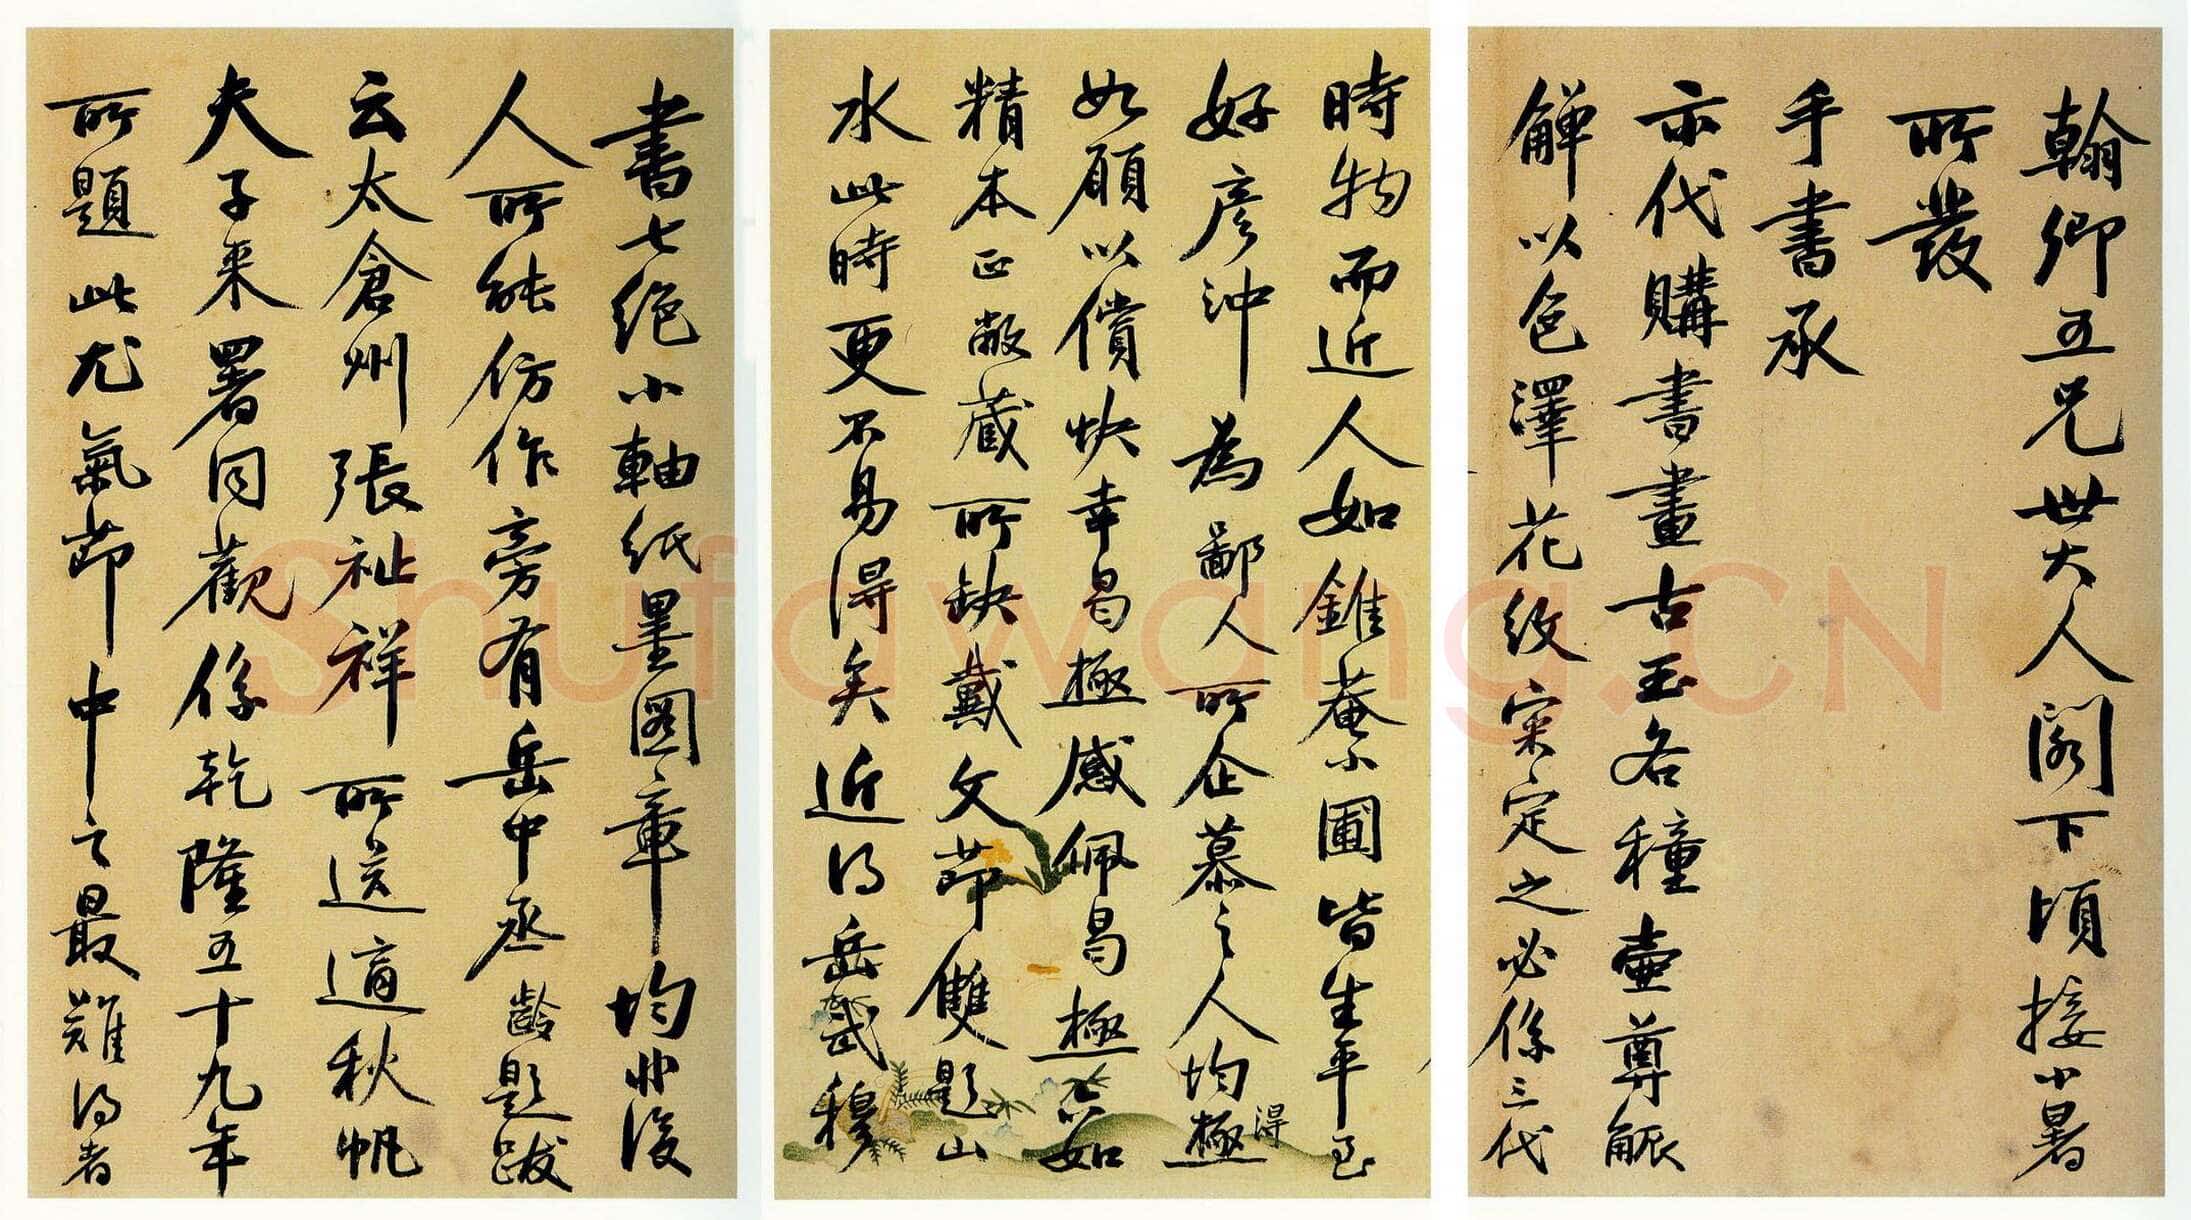 翰卿五兄世大人閣下頃接小暑
所發
手書承
示代購書畫古玉各種壺尊觚
觶以色澤花紋宷定之必係三代
時物而近人如錐菴小圃皆生平至
好彥沖為鄙人所企慕之人均極得
如願以償快幸曷極感佩曷極六如
精本正敝藏所缺戴文節雙題山
水此時更不易得矣近得岳武穆
書七絕小軸紙墨圖章均非後
人所能仿作旁有岳中丞齡題跋
云太倉州張祉祥所送適秋帆
夫子来署同觀係乾隆五十九年
所題此尤氣節中之最難得者
Shufawang.CN